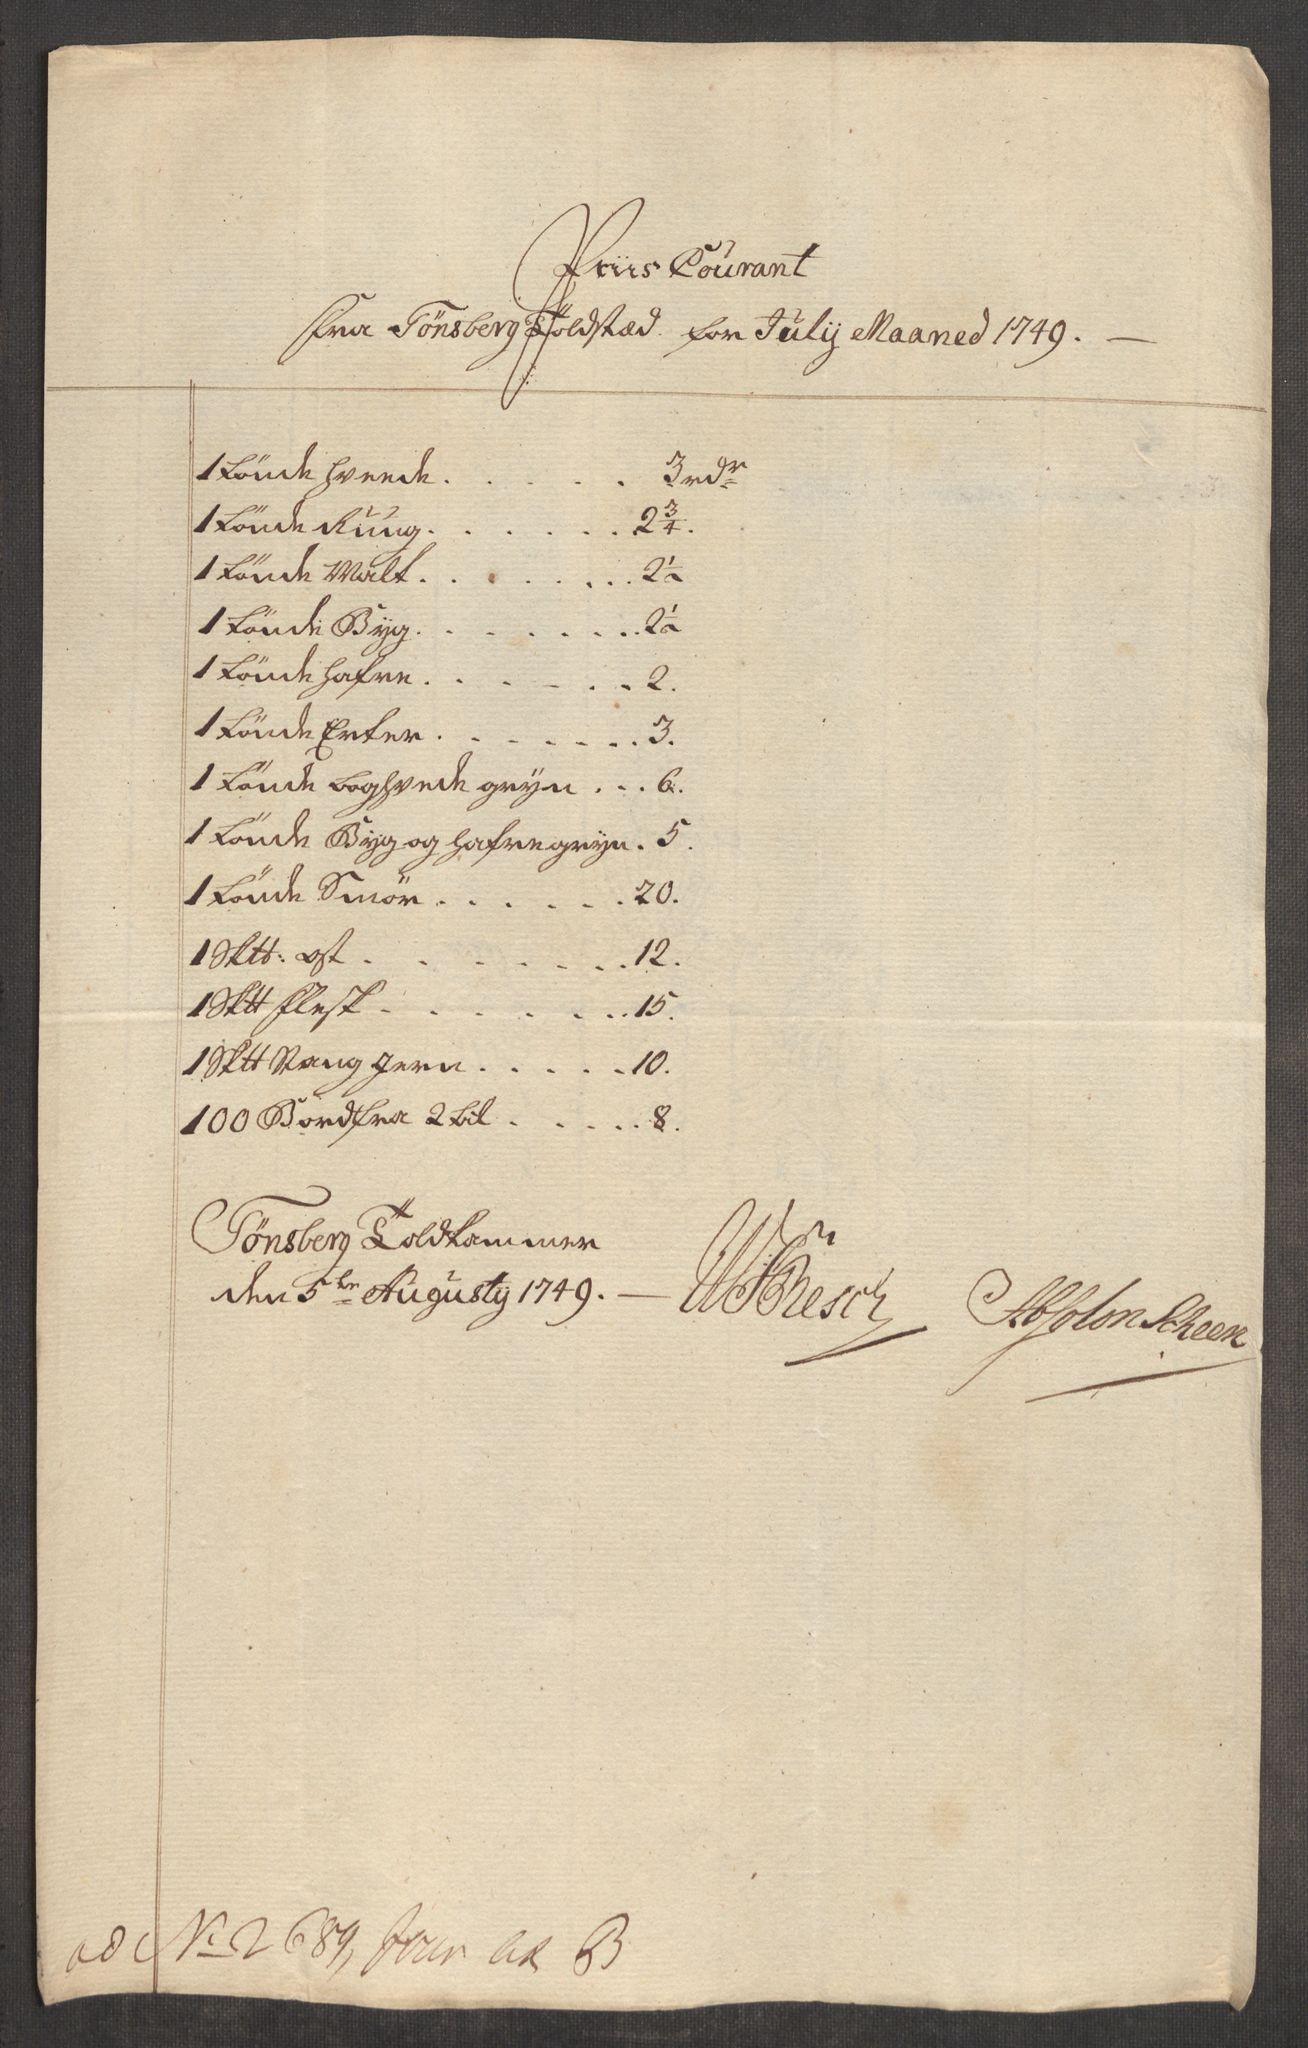 Priis Courant
fra Tönsberg Toldstæd for July Maaned 1749. —
1 tönde hveede . . . . . 3 rdr
1 tönde Rúúg . . . . . . 2 3/4.
1 tönde Malt . . . . . . 2 1/2
1 tönde Byg . . . . . . . 2 1/2
1 tönde hafre . . . . . . 2.
1 tönde Erter . . . . . . . 3.
1 tönde boghvede gryn . . . 6.
1 tönde Byg og hafre gryn . 5.
1 tönde Smör . . . . . . 20.
1 Sktt: ost . . . . . . . 12.
1 Sktt flesk . . . . . . . 15.
1 Sktt Stang jern . . . . . 10.
100 Bord fra 2 tal . . . . . 8.
Tönsberg Toldkammer
den 5te Augusty 1749. —
Absolon Scheen
ad No 2689,
B